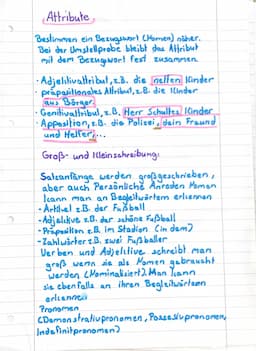 Attribute
Bestimmen ein Bezugswort (Nomen) näher.
Bei der Umstellprobe bleibt das Attribut
mit dem Bezugswort fest zusammen.
· Adjektivattribut, z.B. die netten Kinder
· präpositionales Attribut, z.B. die Kinder
aus Börger
· Genitivattribut, z.B. Herr Schultes Kinder
· Apposition, z.B. die Polizei, dein Freund
und Helfer,...
Groß- und Kleinschreibung:
Satzanfänge werden großgeschrieben,
aber auch Persönliche Anreden Noman
kann man an Begleitwörtern erkennen
- Artikel z.B. der Fußball
- Adjektive z.B. der schöne Fußball
- Präposition z.B. im Stadion (in dem)
- Zahlwörter z.B. zwei Fußballer
Verben und Adjektive schreibt man
groß wenn sie als Nomen gebraucht
werden (Nominalisiert). Man kann
sie ebenfalls an ihren Begleitwörtern
erkennen
Pronomen
(Demonstrativpronomen, Possesivpronomen,
Indefinitpronomen)